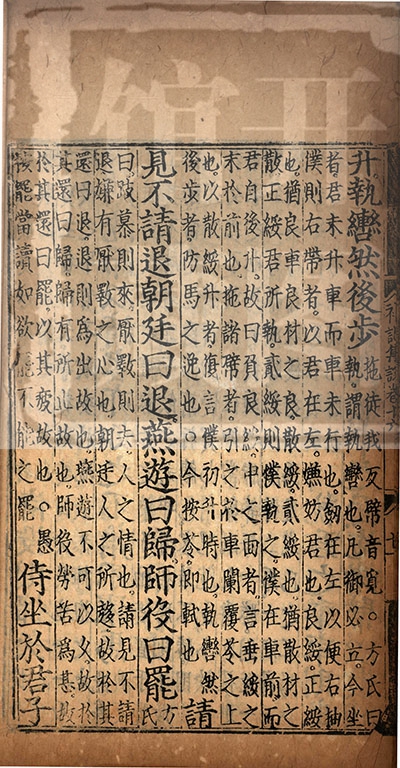 礼記集說卷十六
升執轡然後步
拖徒我反幦音覓。方氏曰
執謂執轡也凡御必立今坐
者君未升車而車未行也劔在左以便右抽
僕則右帶者以君在左嫌妨君也良綏正綏
也猶良車良材之良散綏貳綏也猶散材之
散正綏君所執貳綏則僕執之僕在車前而
君自後升故曰負良綏申之面者言垂綏之
末於前也拖諸幦者引之於車闌覆苓之上
也以散綏升者復言僕初升時也執轡然
後步者防馬之逸也。今按苓即軾也
請
見不請退朝廷曰退燕遊曰歸師役曰罷
方
氏
曰跂慕則來厭斁則去人之情也請見不請
退嫌有厭斁之心也朝廷人之所趨故於其
還曰退退則為出故也燕遊不可以久故於
其還曰歸歸有所止故也師役勞苦爲甚故
於其還曰罷以其疲故也。愚
按罷當讀如欲罷不能之罷
侍坐於君子